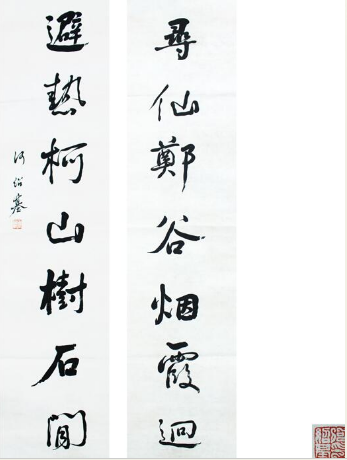 尋仙鄭谷烟霞迥
避熱柯山樹石閒
何紹基